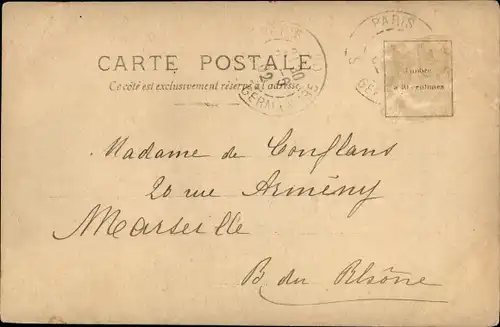 CARTE POSTALE
Ce côté est exclusivement réservé à l'adresse
PARIS
Timbre
à 10 centimes
Madame de Conflans
20 rue Armény
Marseille
B. du Rhône